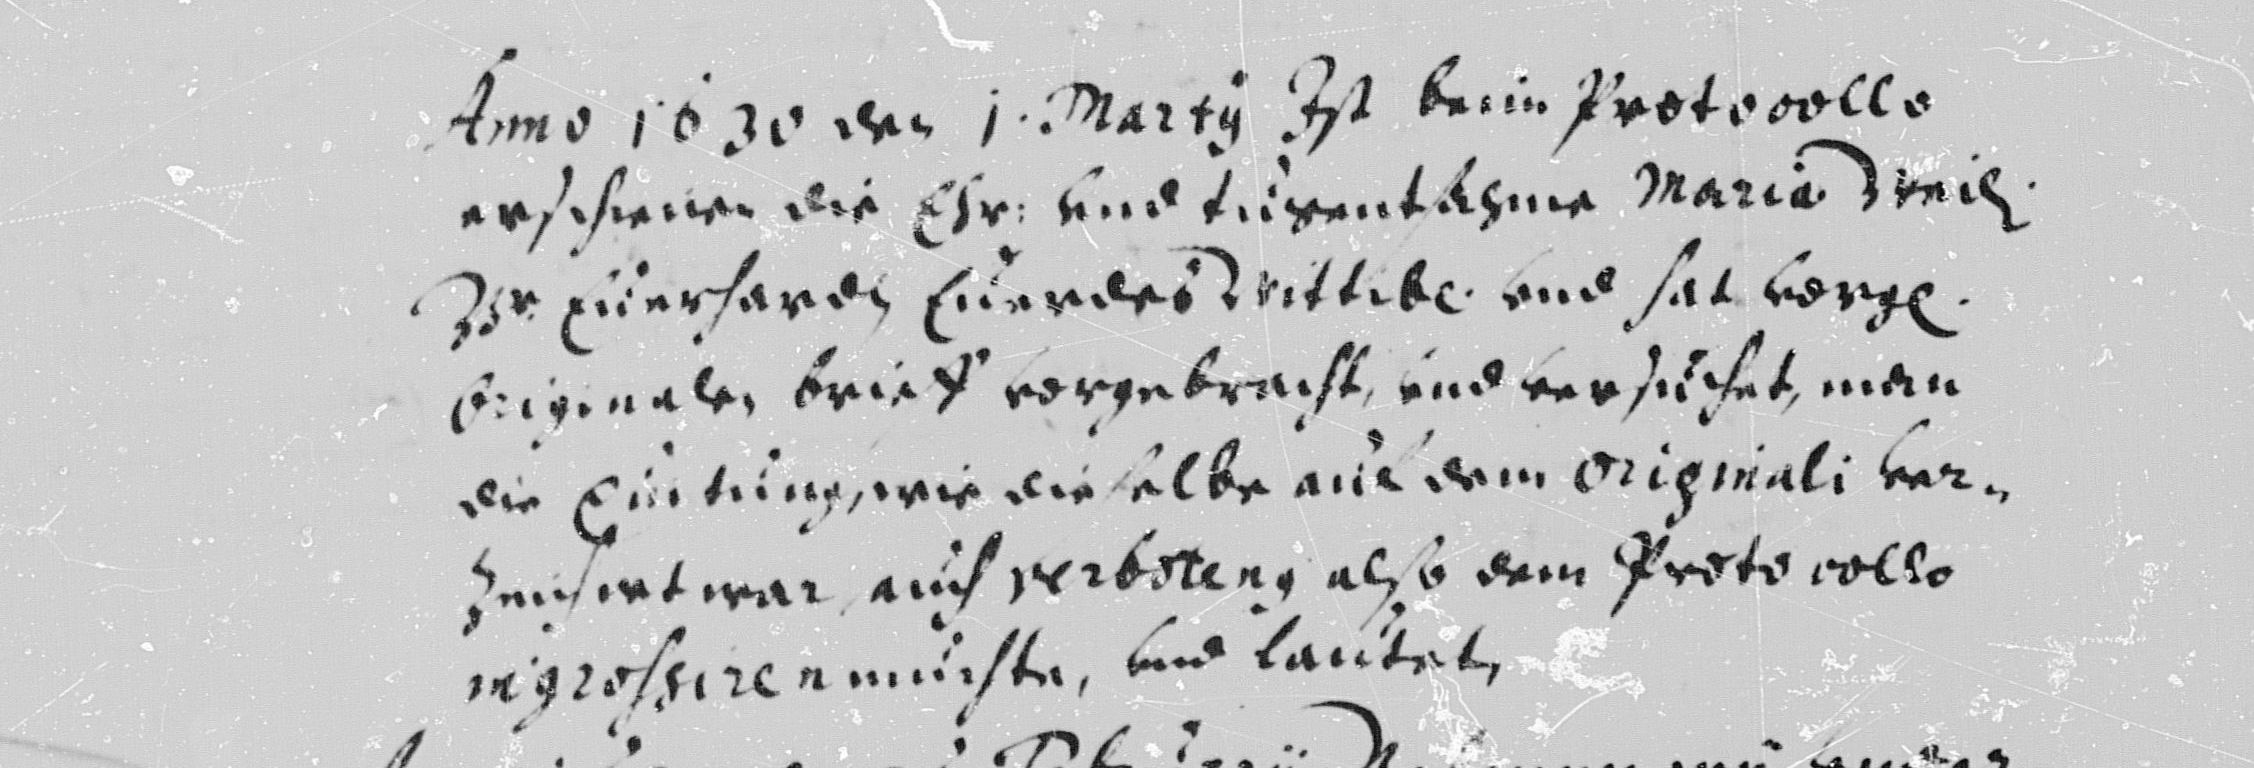 Anno 1630 den 1. Martÿ Ist beim Protocollo
erschienen die Ehr: und tugentsahme Maria
Euerhardtz Wittibe. und hat vorge.
Originalen brieff vorgebracht, und versuchet, man
die quitung, wie dieselbe auß dem Originali ver„
Zeichnet war, auch verbotenus also dem Protocollo
ingrossiren muchte, und lautet,